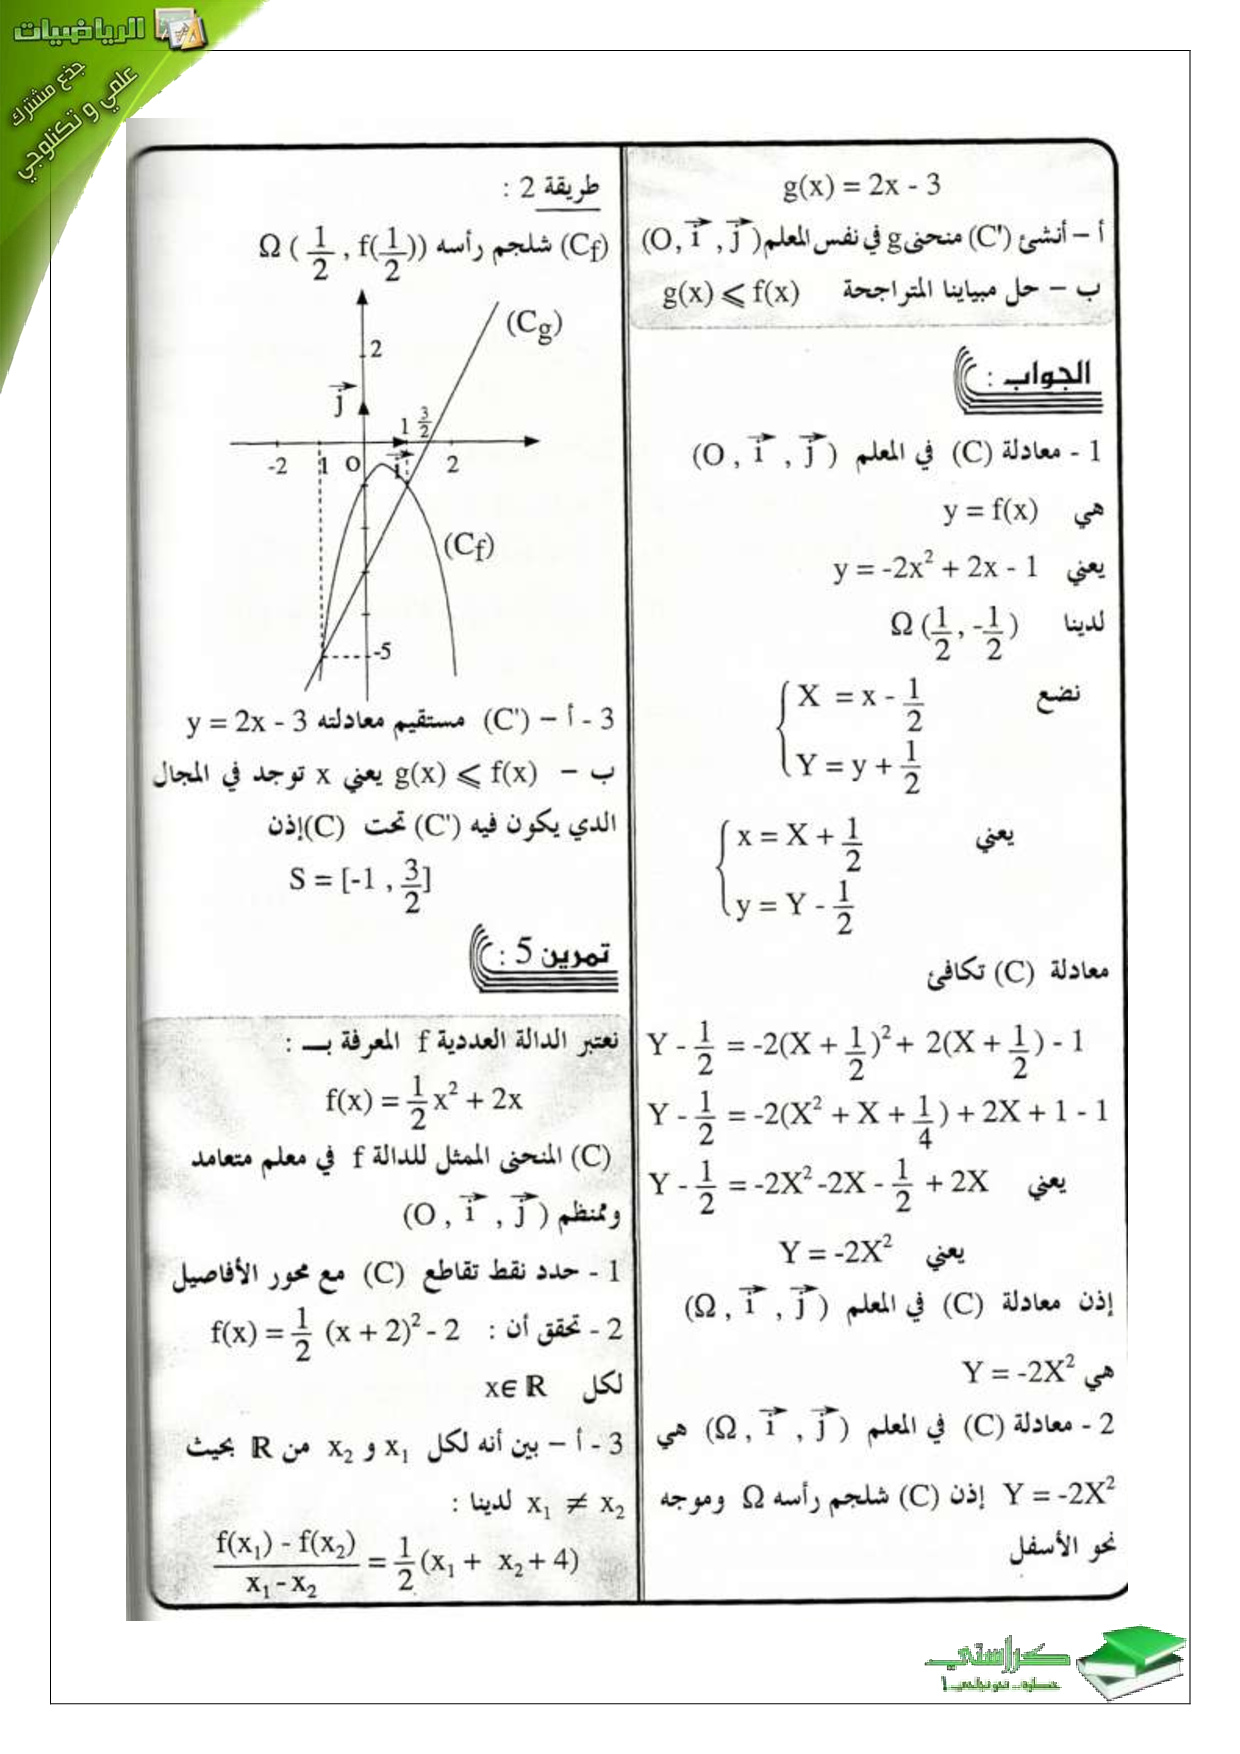 الرياضيات
جذع مشترك
علمي و تكنلوجي
g(x) = 2x - 3
أ – أنشئ (C') منحنى g في نفس المعلم (O, i, j)
ب – حل مبيانا المتراجحة g(x) ⩽ f(x)
الجواب :
1 - معادلة (C) في المعلم (O , i , j)
هي y = f(x)
يعني y = -2x² + 2x - 1
لدينا Ω (1/2 , -1/2)
نضع { X = x - 1/2
Y = y + 1/2
يعني { x = X + 1/2
y = Y - 1/2
معادلة (C) تكافئ
Y - 1/2 = -2(X + 1/2)² + 2(X + 1/2) - 1
Y - 1/2 = -2(X² + X + 1/4) + 2X + 1 - 1
يعني Y - 1/2 = -2X² -2X - 1/2 + 2X
يعني Y = -2X²
إذن معادلة (C) في المعلم (Ω , i , j)
هي Y = -2X²
2 - معادلة (C) في المعلم (Ω , i , j) هي
Y = -2X² إذن (C) شلجم رأسه Ω وموجه
نحو الأسفل
طريقة 2 :
(Cf) شلجم رأسه Ω (1/2 , f(1/2))
(Cg)
2
j
1 3/2
-2 1 O i 2
(Cf)
-5
3 - أ – (C') مستقيم معادلته y = 2x - 3
ب – g(x) ⩽ f(x) يعني x توجد في المجال
الدي يكون فيه (C') تحت (C) إذن
S = [-1 , 3/2]
تمرين 5 :
نعتبر الدالة العددية f المعرفة بـ :
f(x) = 1/2 x² + 2x
(C) المنحنى الممثل للدالة f في معلم متعامد
وممنظم (O , i , j)
1 - حدد نقط تقاطع (C) مع محور الأفاصيل
2 - تحقق أن : f(x) = 1/2 (x + 2)² - 2
لكل x∈ ℝ
3 - أ – بين أنه لكل x₁ و x₂ من ℝ بحيث
x₁ ≠ x₂ لدينا :
(f(x₁) - f(x₂))/(x₁ - x₂) = 1/2 (x₁ + x₂ + 4)
كراستي